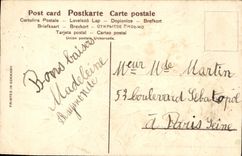 Post card Postkarte Carte postale
Cartolina Postale — Levelező Lap — Dopisnice — Brefkort
Briefkaart — Brevkort — ОТКРЫТОЕ ПИСЬМО
Tarjeta postal — Cartao postal
Union postale universelle.
Bons baisers
Madeleine
Raymonde
Meur Mlle Martin
53 boulevard Sébastopol
à Paris Seine
PRINTED IN GERMANY